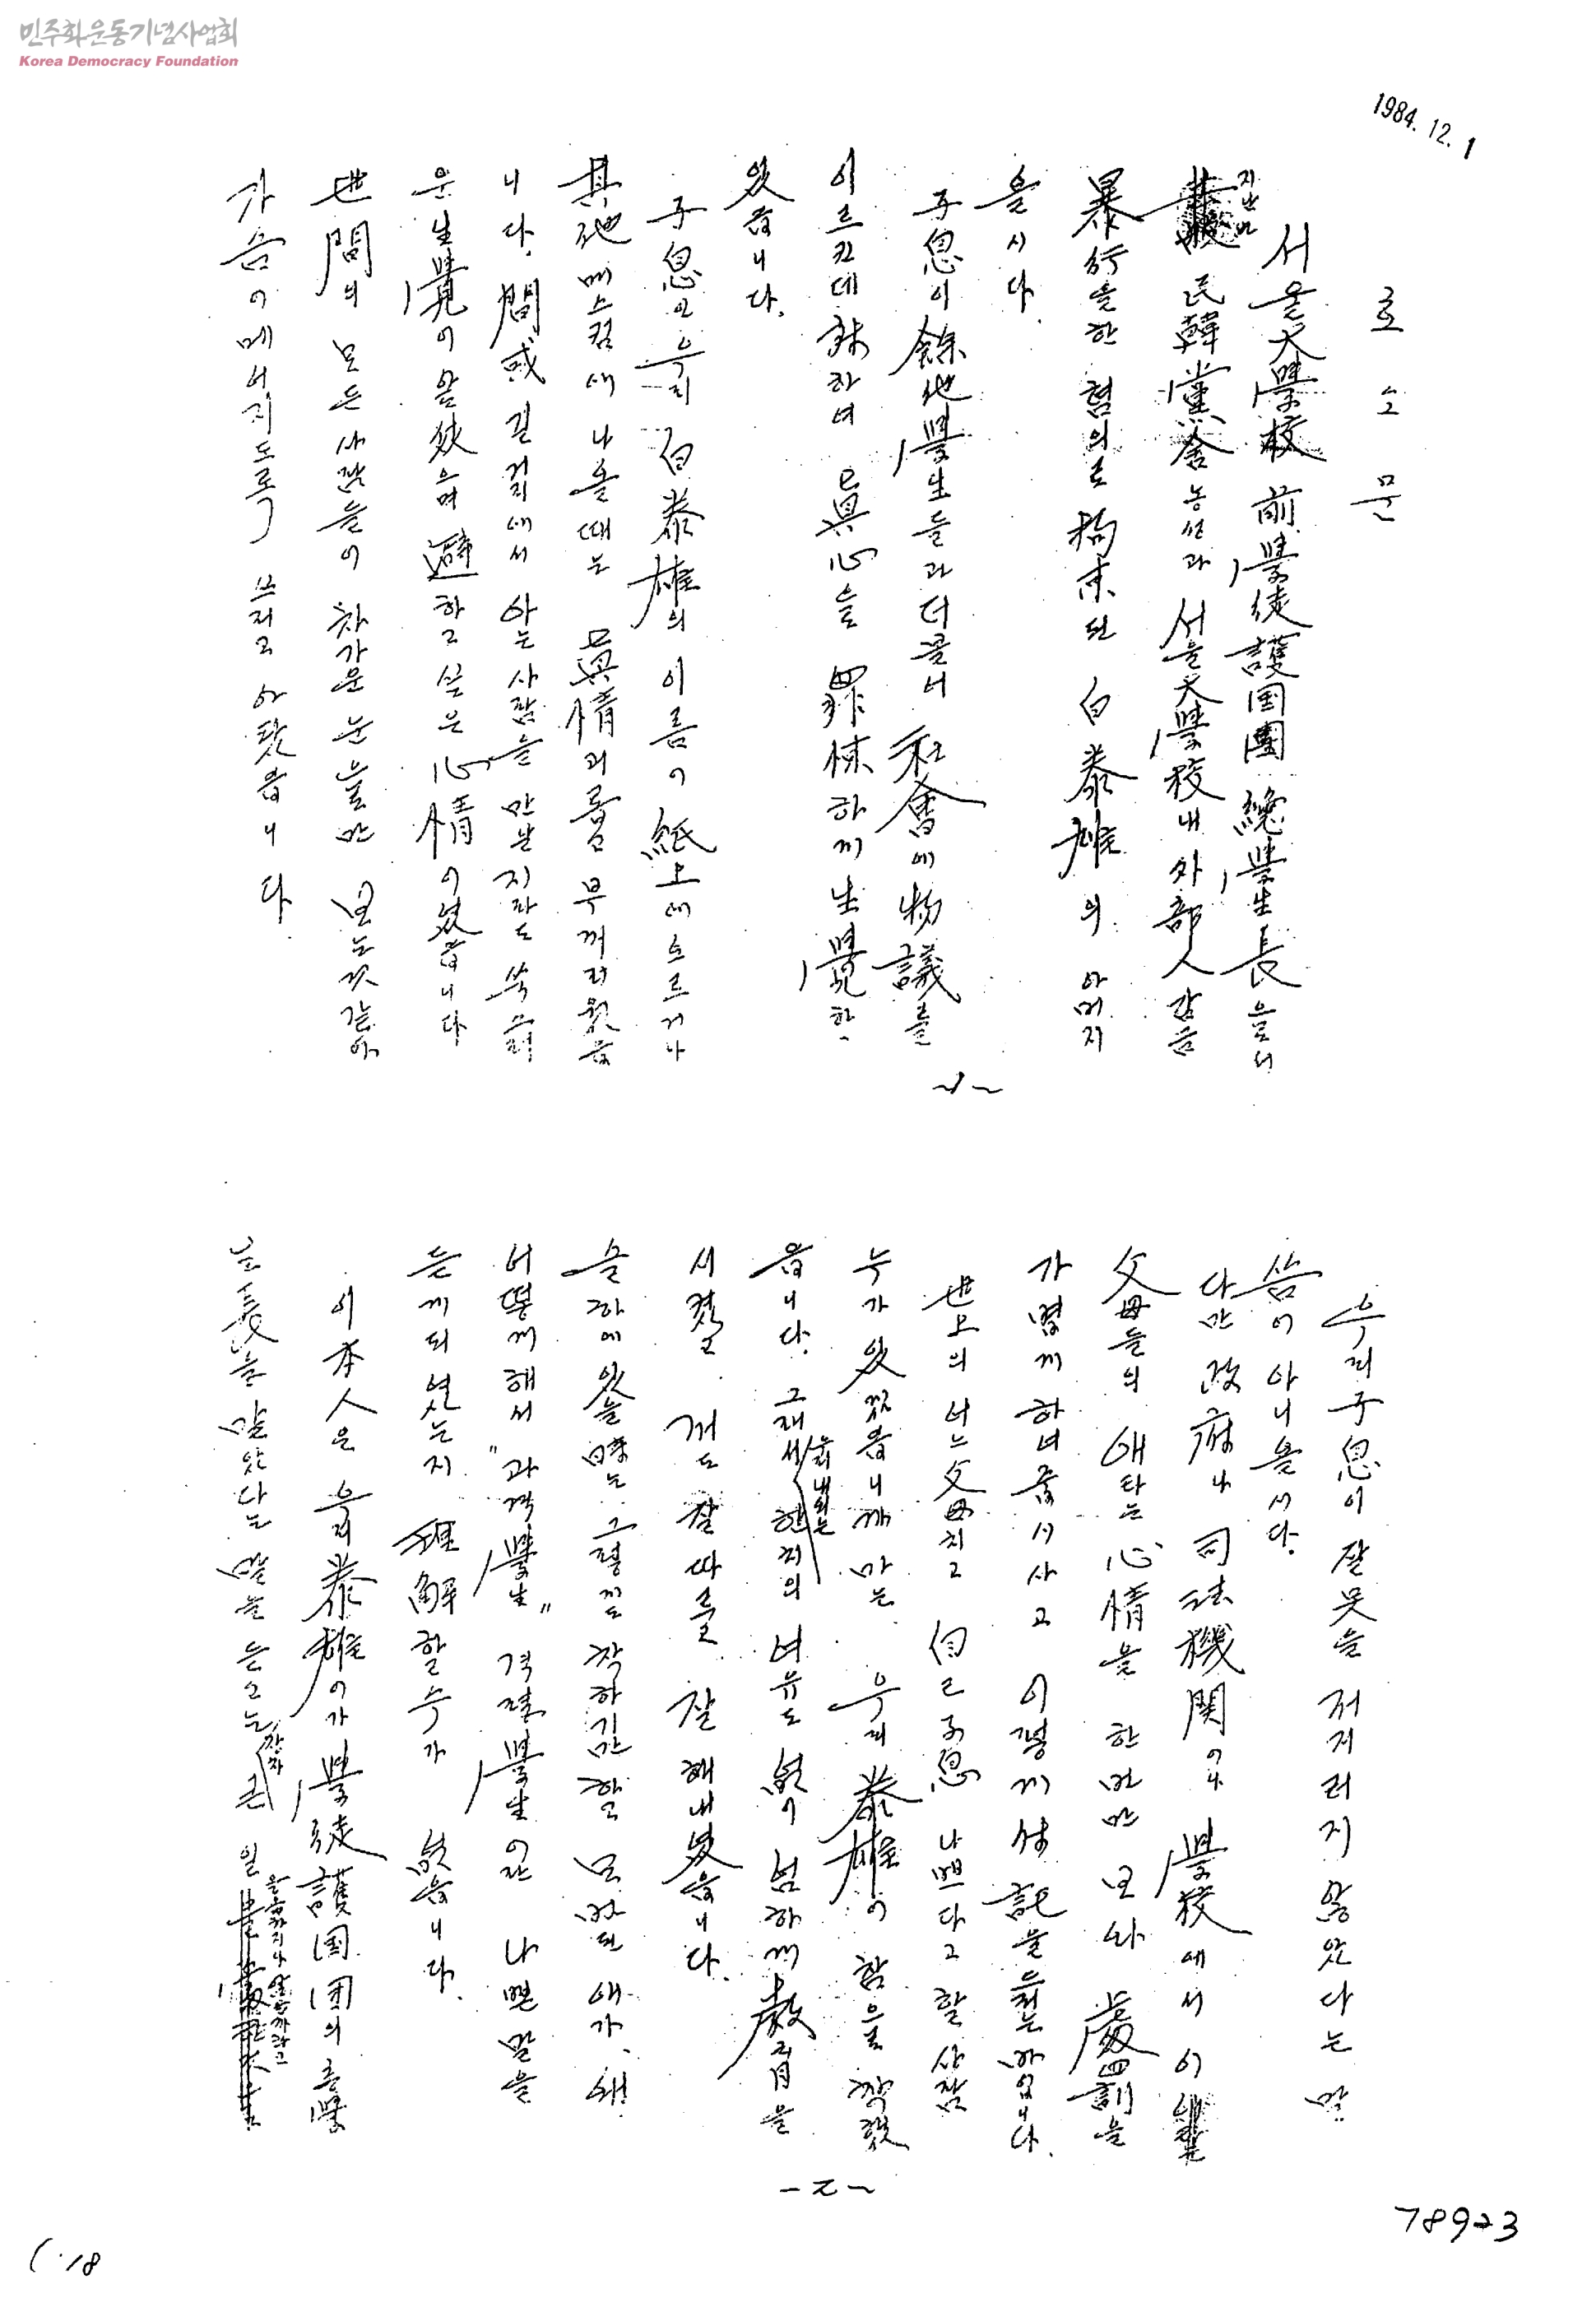 민주화운동기념사업회
Korea Democracy Foundation
1984. 12. 1
호소문
서울大學校 前 學徒護国團 總學生長을로서
지난번
民韓黨舍 농성과 서울大學校내 外部人 감금
暴行을한 혐의로 拘束된 白泰雄의 아버지
올시다.
子息이 餘他學生들과 더불어 社會에 物議를
이르킨데 対하여 眞心으로 罪悚하게 生覺하
있읍니다.
子息인 우리 白泰雄의 이름이 紙上에 오르거나
其他 매스컴에 나올때는 眞情 괴롭고 부끄러웠읍
니다. 間或 길거리에서 아는 사람을 만날지라도 쑥스러
운 生覺이 앞섰으며 避하고 싶은 心情이였읍니다
世間의 모든 사람들이 차가운 눈으로만 보는것 같아
가슴이 메어지도록 쓰리고 아팠읍니다.
~1~
우리 子息이 잘못을 저지러지 않았다는 말
씀이 아니올시다.
다만 政府나 司法機関이나 學校에서 이
父母들의 애타는 心情을 한번만 보와 處罰을
가볍게 하여 줍시사고 이렇게 付託을 드리는 바입니다.
世上의 어느 父母치고 自己 子息 나쁘다고 할 사람
누가 있겠읍니까마는 우리 泰雄이 함은 착했
읍니다. 그래서 우리 내외는 한치의 여유도 없이 넘하게 敎育을
시켰고 꺼도 잘 따르고 잘 해내였읍니다.
슬하에 있을 時는 그렇게도 착하기만 하고 모범된 애가, 왜!
어떻게 해서 "과격學生" 격렬學生이란 나쁜 말을
듣게 되였는지 理解할 수가 없읍니다.
이 本人은 우리 泰雄이가 學徒護国団의 총學
生長을 맡았다는 말을 듣고는 큰 일
- 2 ~
78923
1.18